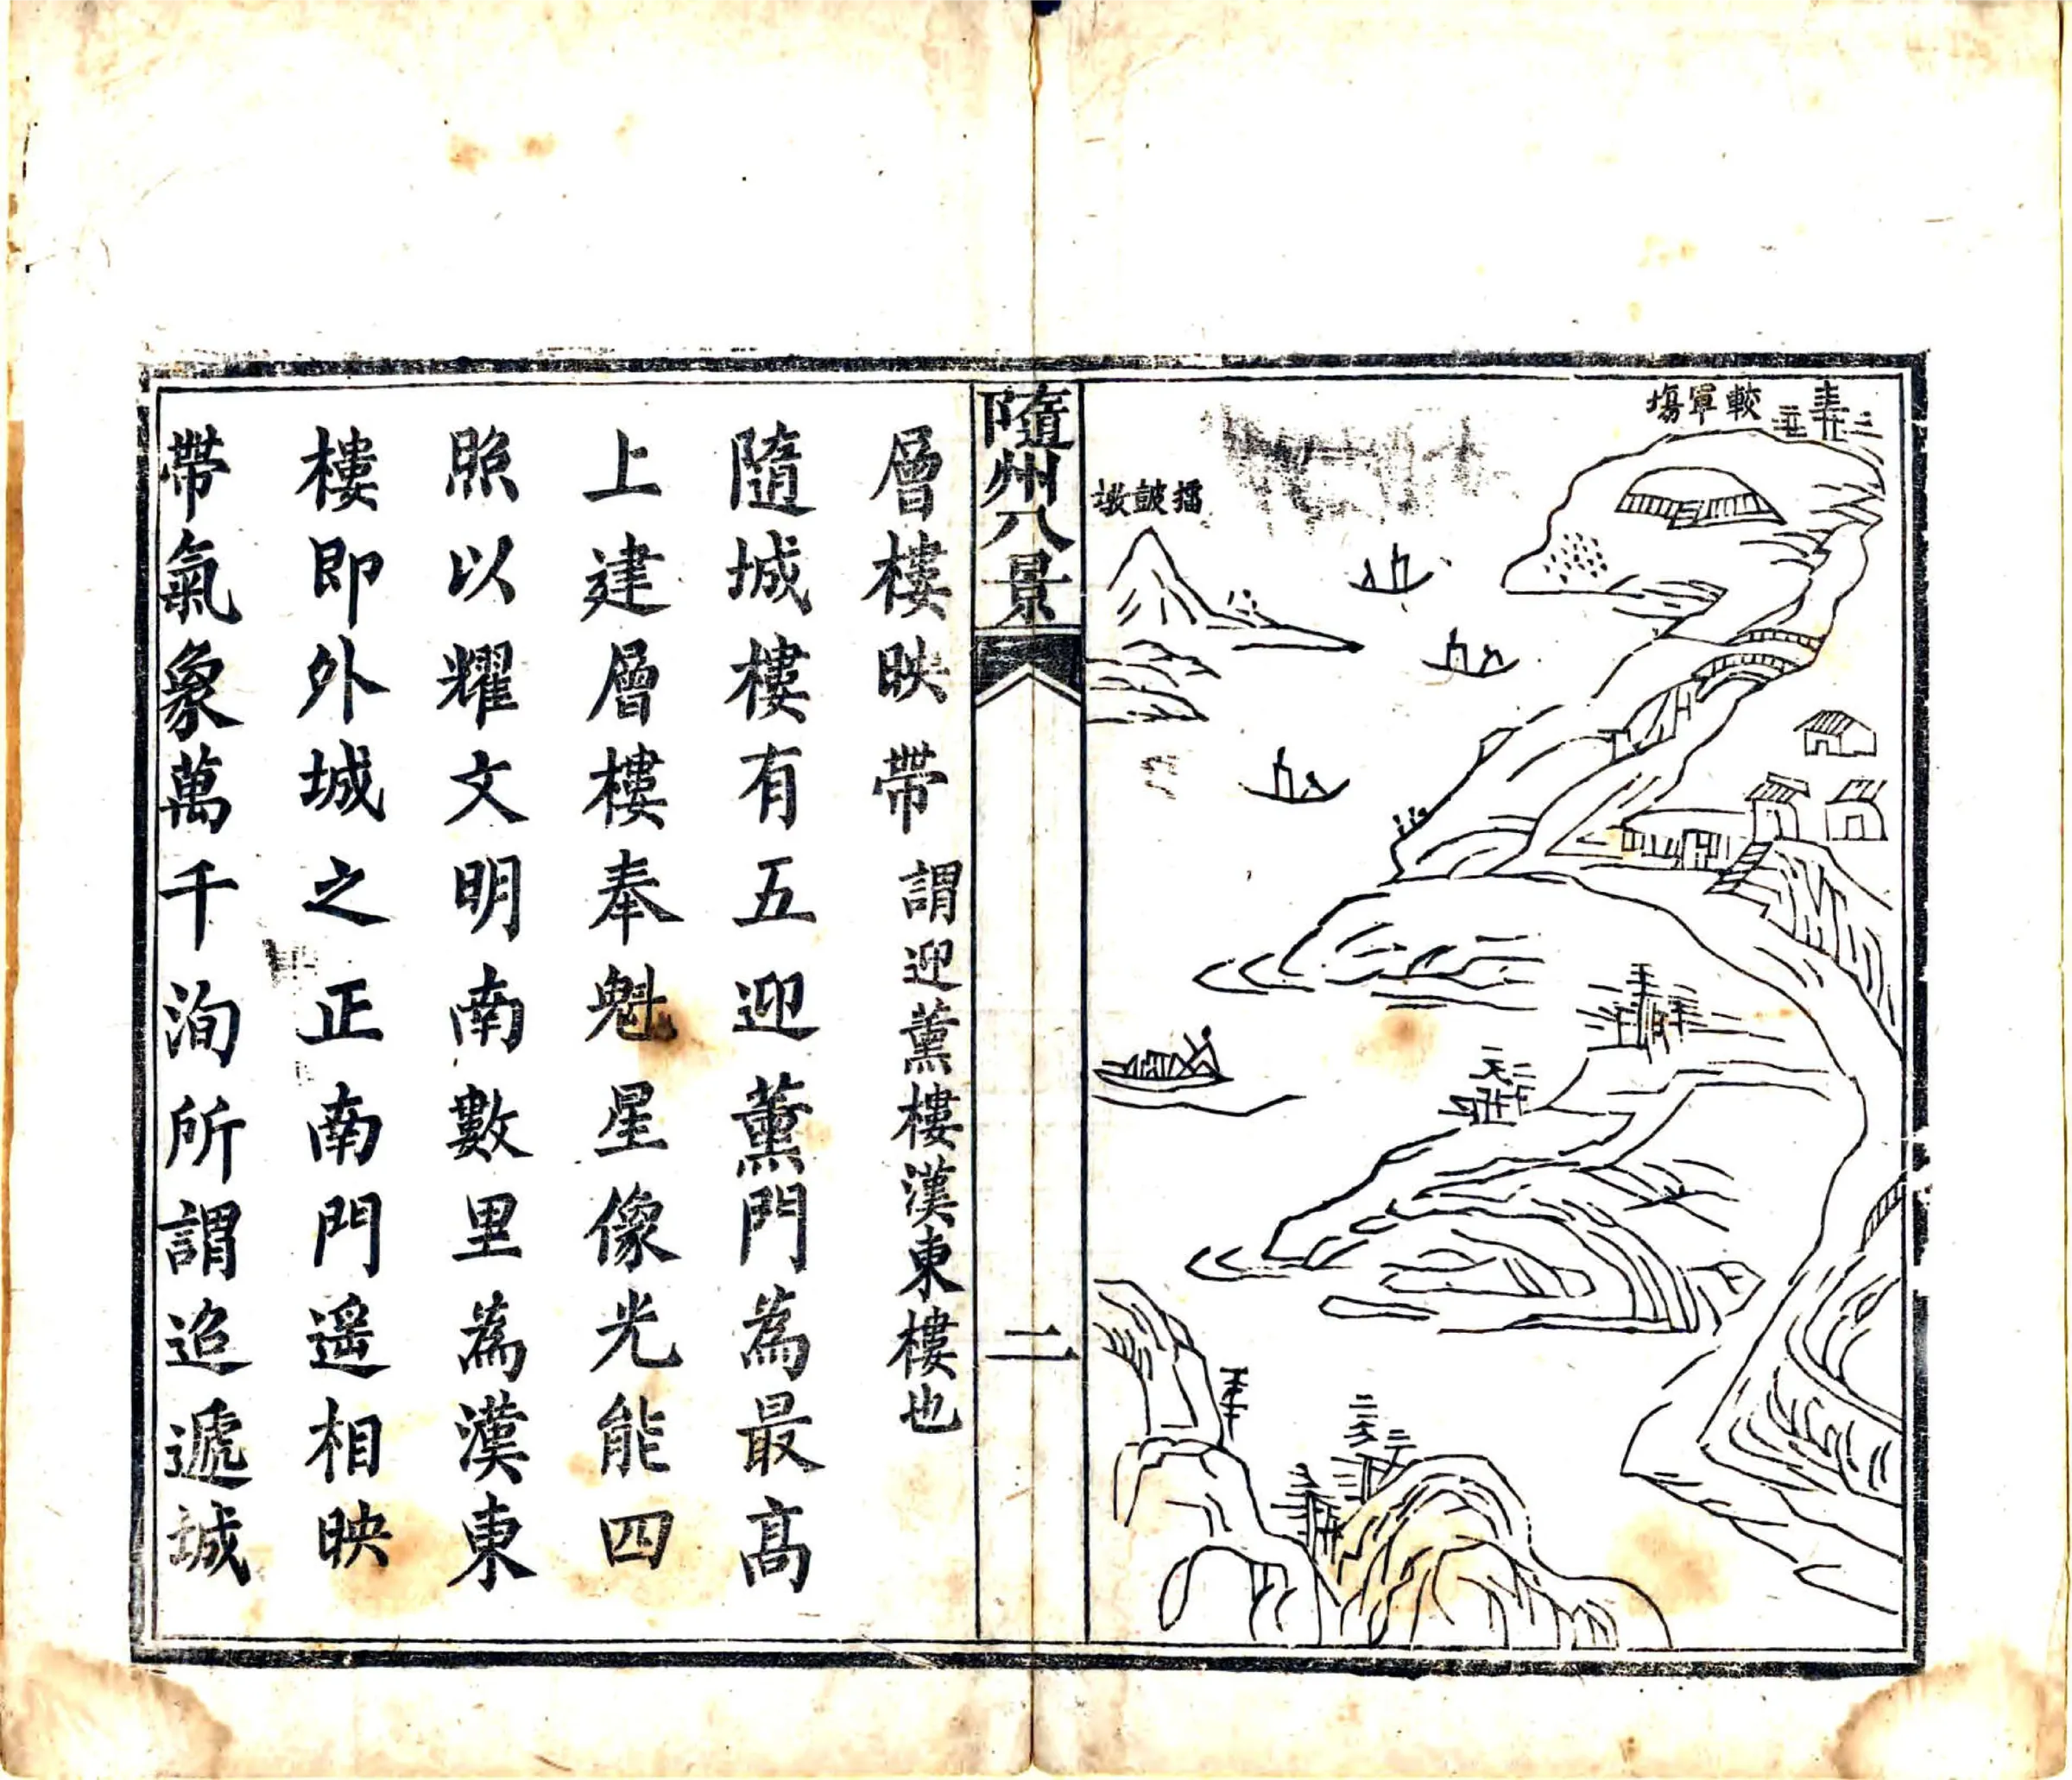 較軍塲
擂鼓墩
隨州八景
二
層樓映帶 謂迎薰樓漢東樓也
隨城樓有五迎薰門為最高
上建層樓奉魁星像光能四
照以耀文明南數里為漢東
樓即外城之正南門遥相映
帶氣象萬千洵所謂迢遞城